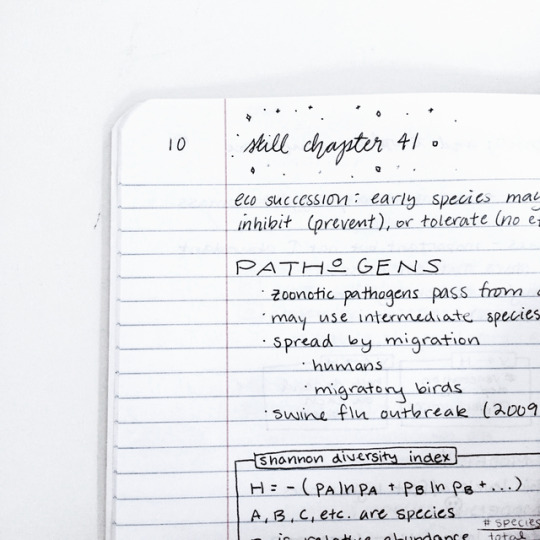 10
still chapter 41
eco succession: early species may
inhibit (prevent), or tolerate (no e
PATHOGENS
· zoonotic pathogens pass from
· may use intermediate species
· spread by migration
· humans
· migratory birds
· swine flu outbreak (2009
shannon diversity index
H = - (pA ln pA + pB ln pB + ...)
A, B, C, etc. are species
is relative abundance # species
total